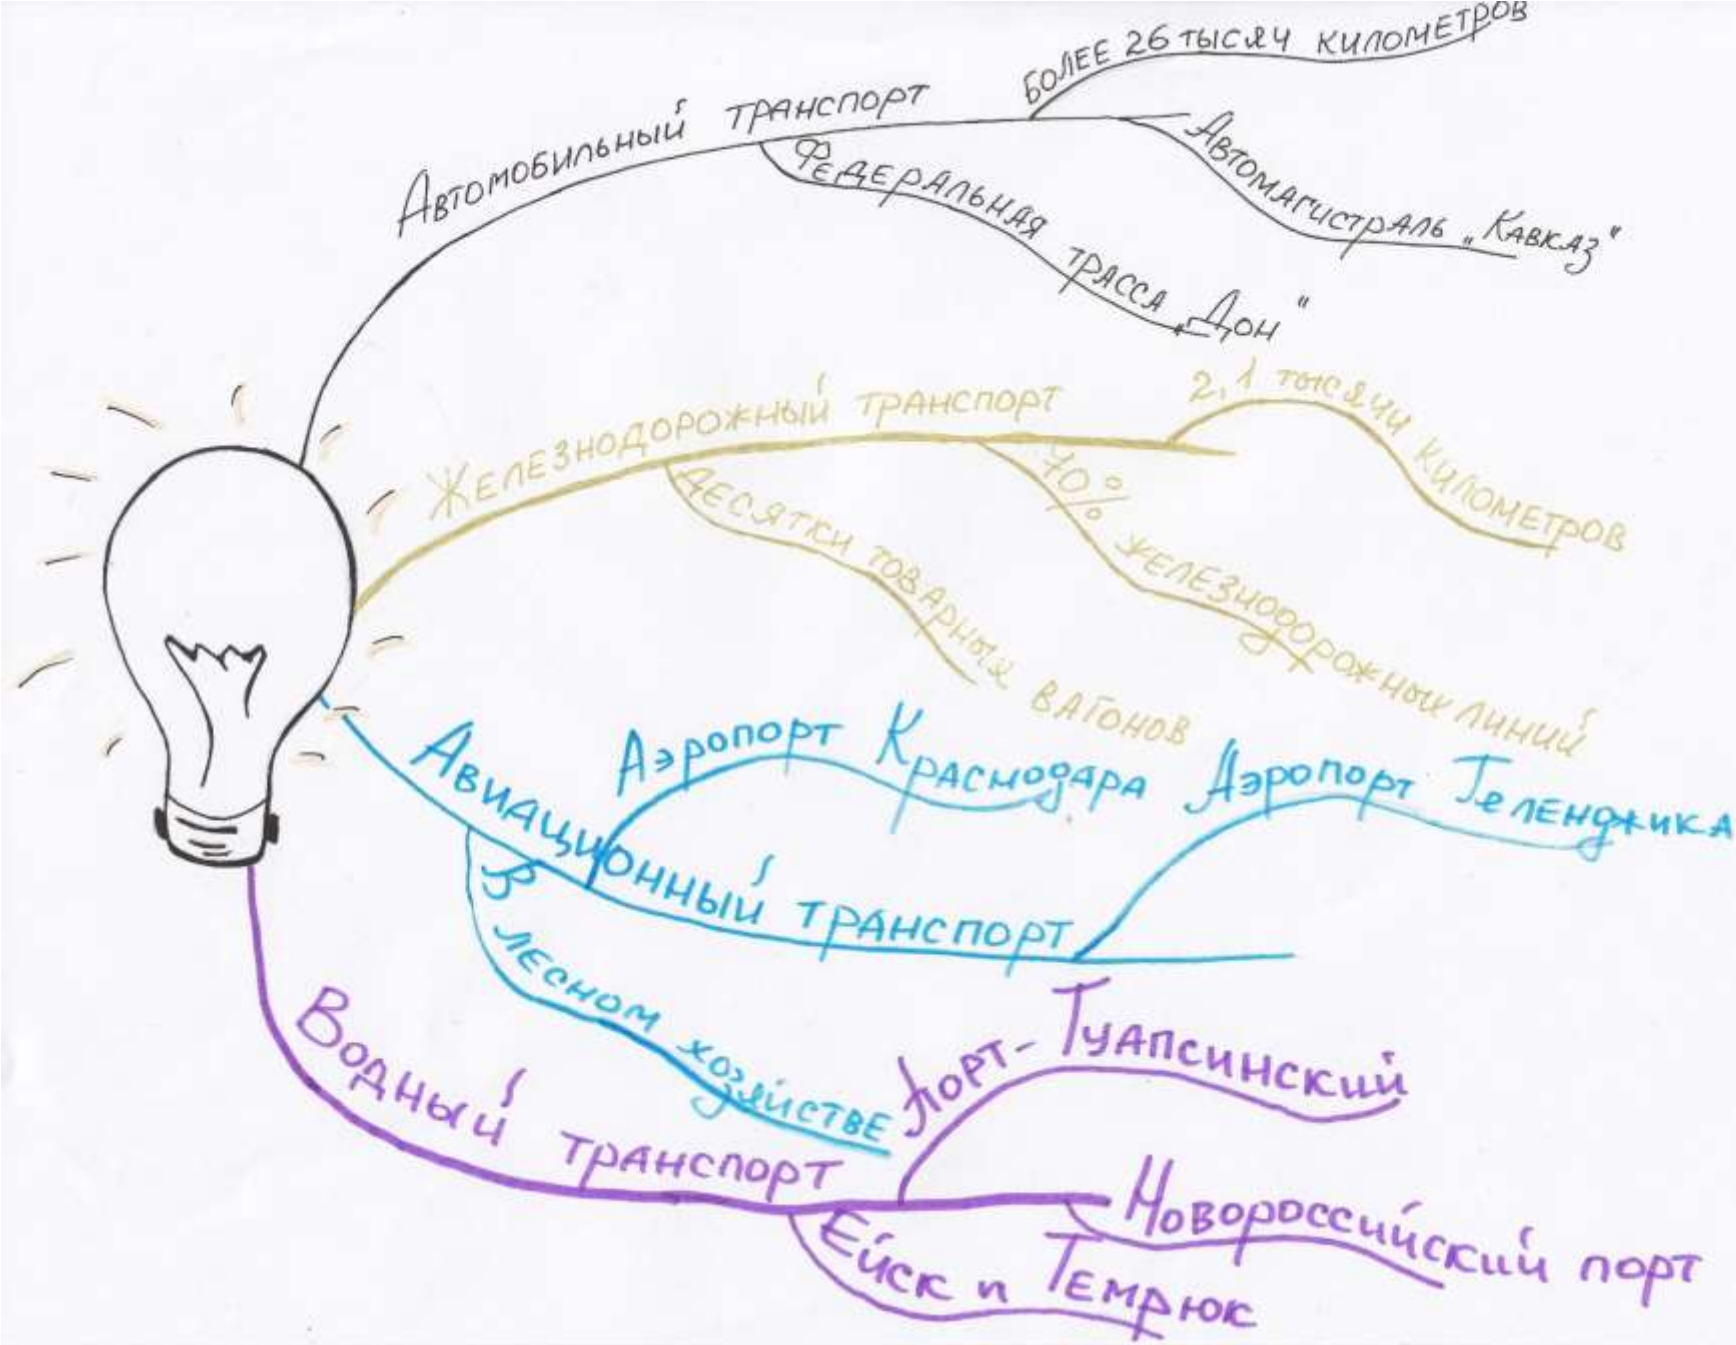 Автомобильный транспорт
Более 26 тысяч километров
Автомагистраль „Кавказ"
Федеральная трасса „Дон"
Железнодорожный транспорт
2,1 тысячи километров
70% железнодорожных линий
Десятки товарных вагонов
Авиационный транспорт
Аэропорт Краснодара
Аэропорт Геленджика
В лесном хозяйстве
Водный транспорт
Порт-Туапсинский
Новороссийский порт
Ейск и Темрюк